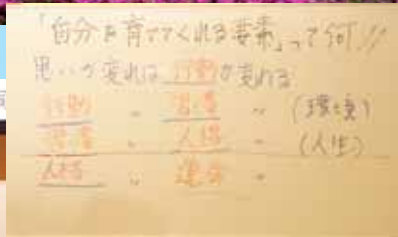 「自分を育ててくれる要素」って何!!
思いが変れば 行動が変わる
行動 〃 習慣 〃 (環境)
習慣 〃 人格 〃 (人生)
人格 〃 運命 〃